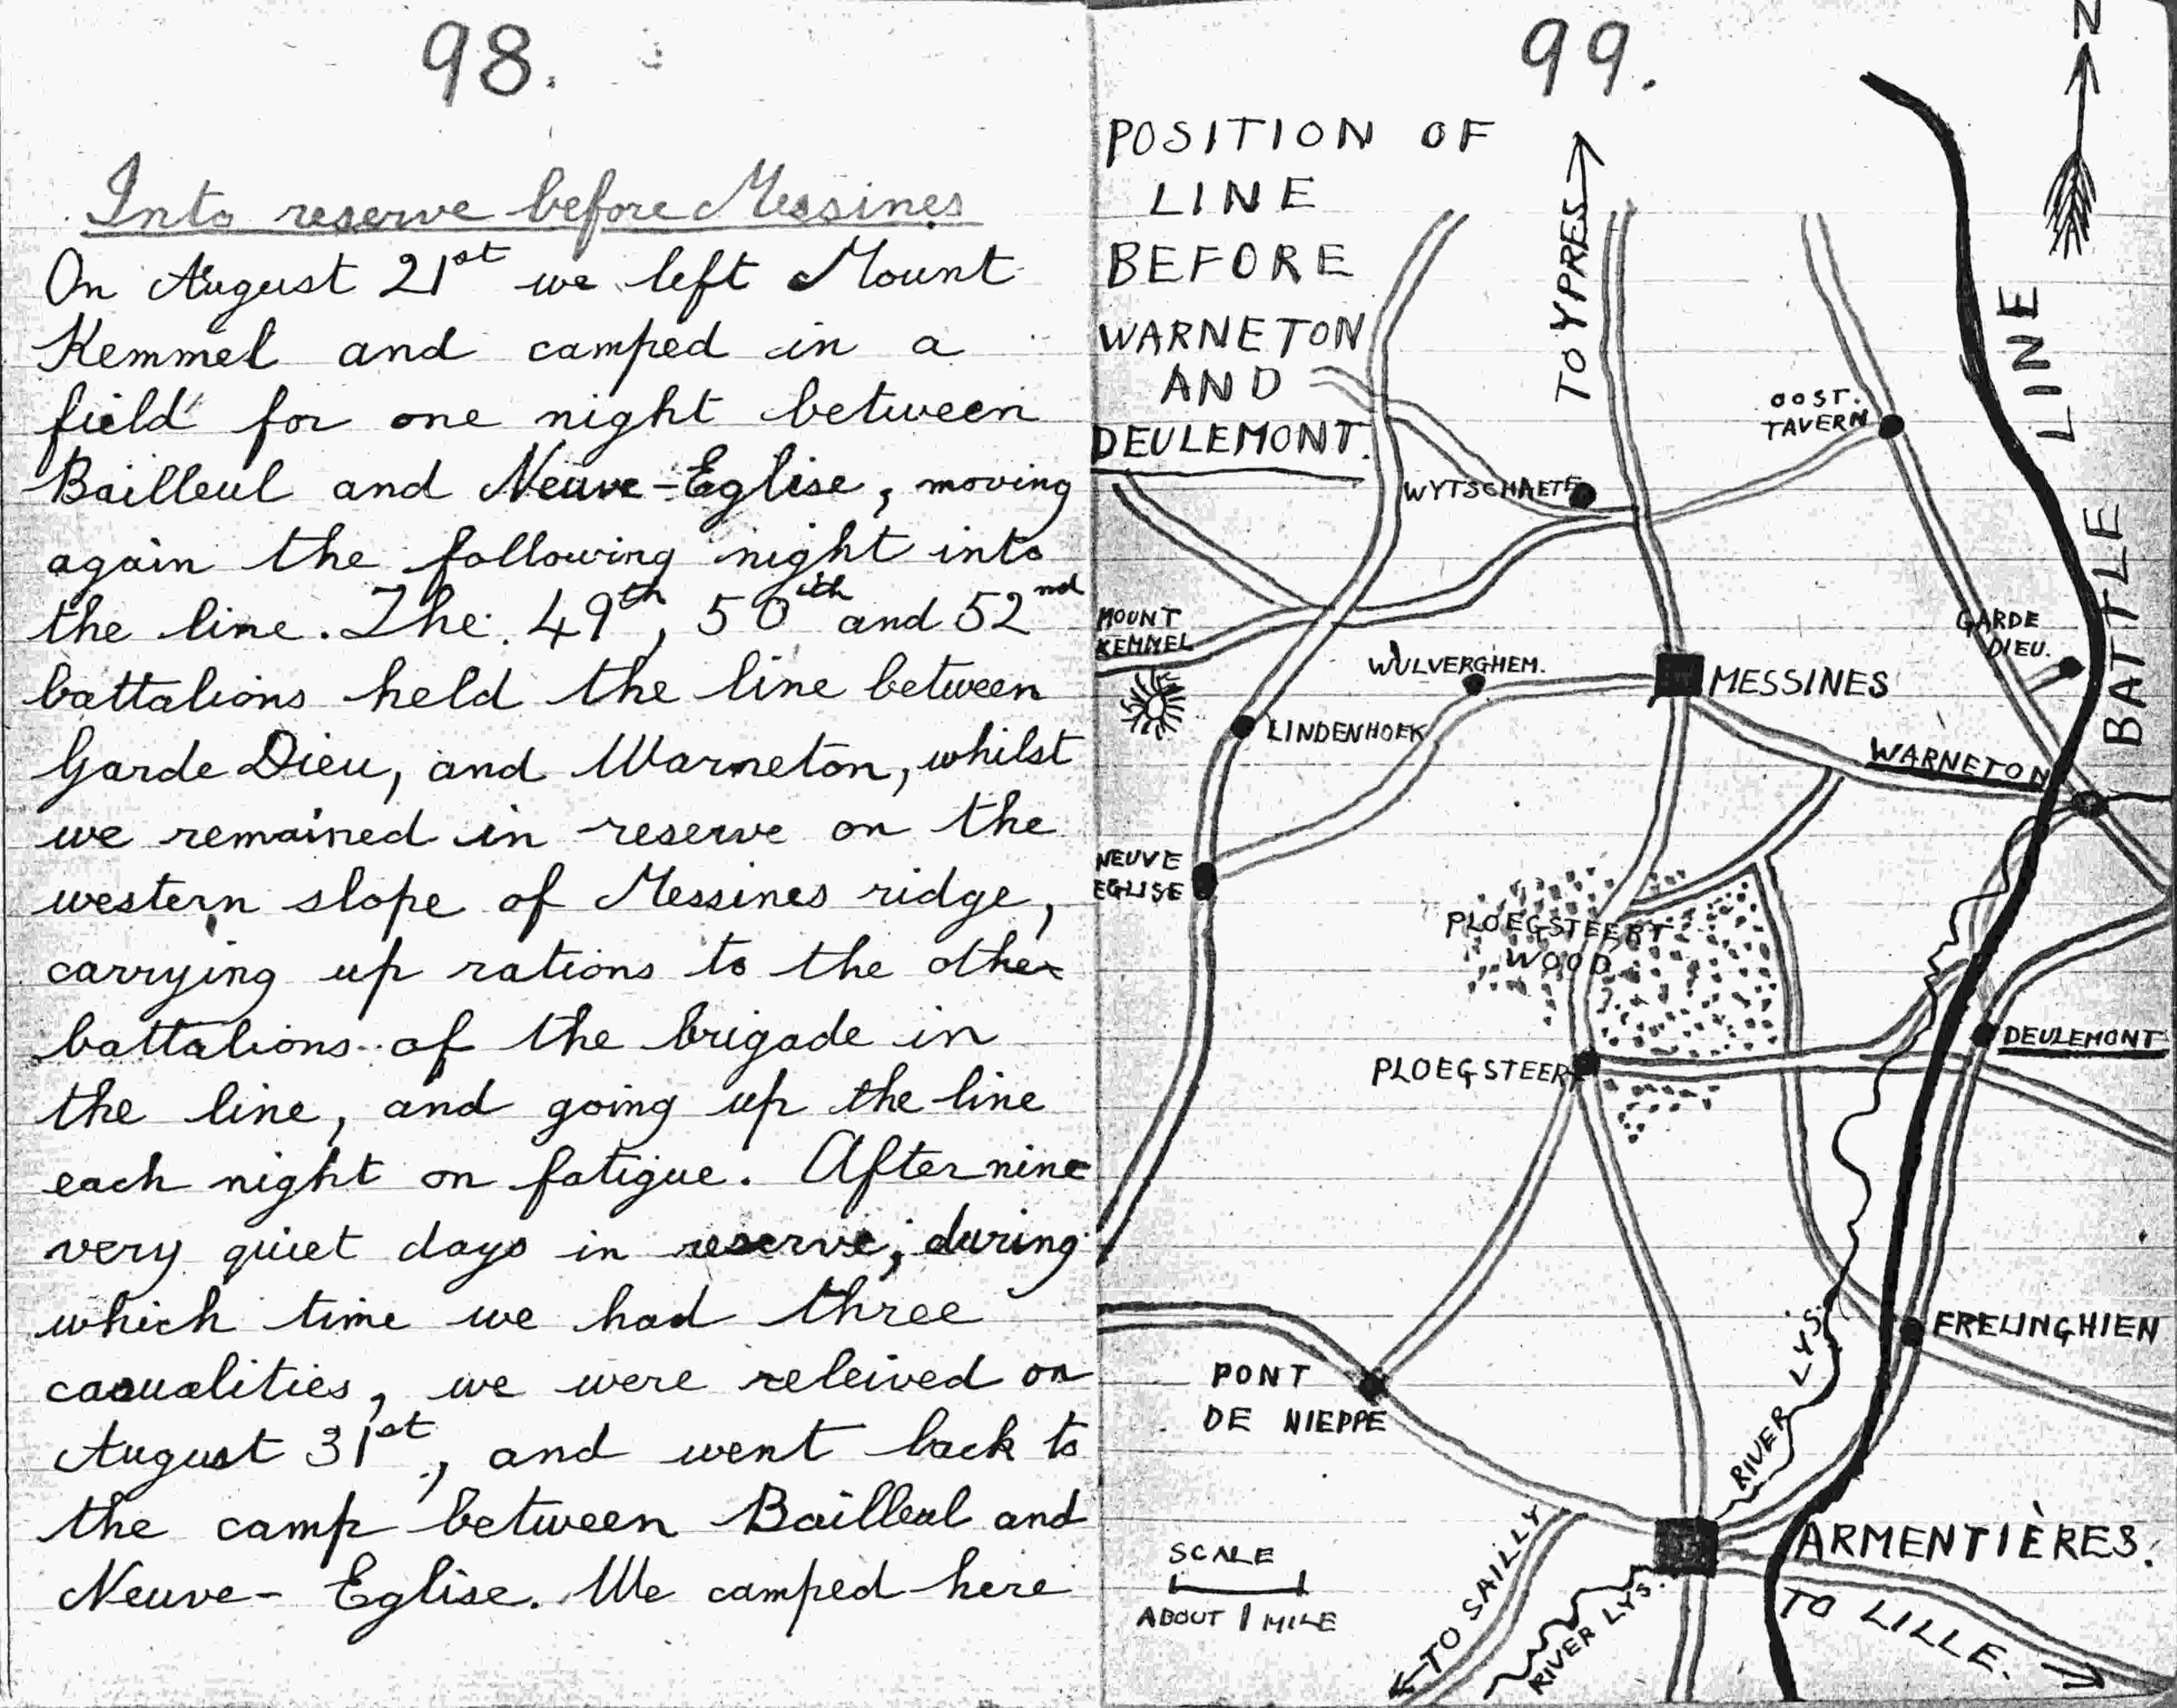 98.
Into reserve before Messines
On August 21st we left Mount
Kemmel and camped in a
field for one night between
Bailleul and Neuve-Eglise, moving
again the following night into
the line. The 49th, 50th and 52nd
battalions held the line between
Garde Dieu, and Warneton, whilst
we remained in reserve on the
western slope of Messines ridge,
carrying up rations to the other
battalions of the brigade in
the line, and going up the line
each night on fatigue. After nine
very quiet days in reserve, during
which time we had three
casualities, we were releived on
August 31st, and went back to
the camp between Bailleul and
Neuve-Eglise. We camped here
99.
POSITION OF
LINE
BEFORE
WARNETON
AND
DEULEMONT.
N
TO YPRES
BATTLE LINE
OOST.
TAVERN
WYTSCHAETE
MOUNT
KEMMEL
GARDE
DIEU.
WULVERGHEM.
MESSINES
LINDENHOEK
WARNETON
NEUVE
EGLISE
PLOEGSTEERT
WOOD
DEULEMONT
PLOEGSTEERT
FRELINGHIEN
RIVER LYS.
PONT
DE NIEPPE
ARMENTIÈRES.
SCALE
ABOUT 1 MILE
TO SAILLY
RIVER LYS.
TO LILLE.